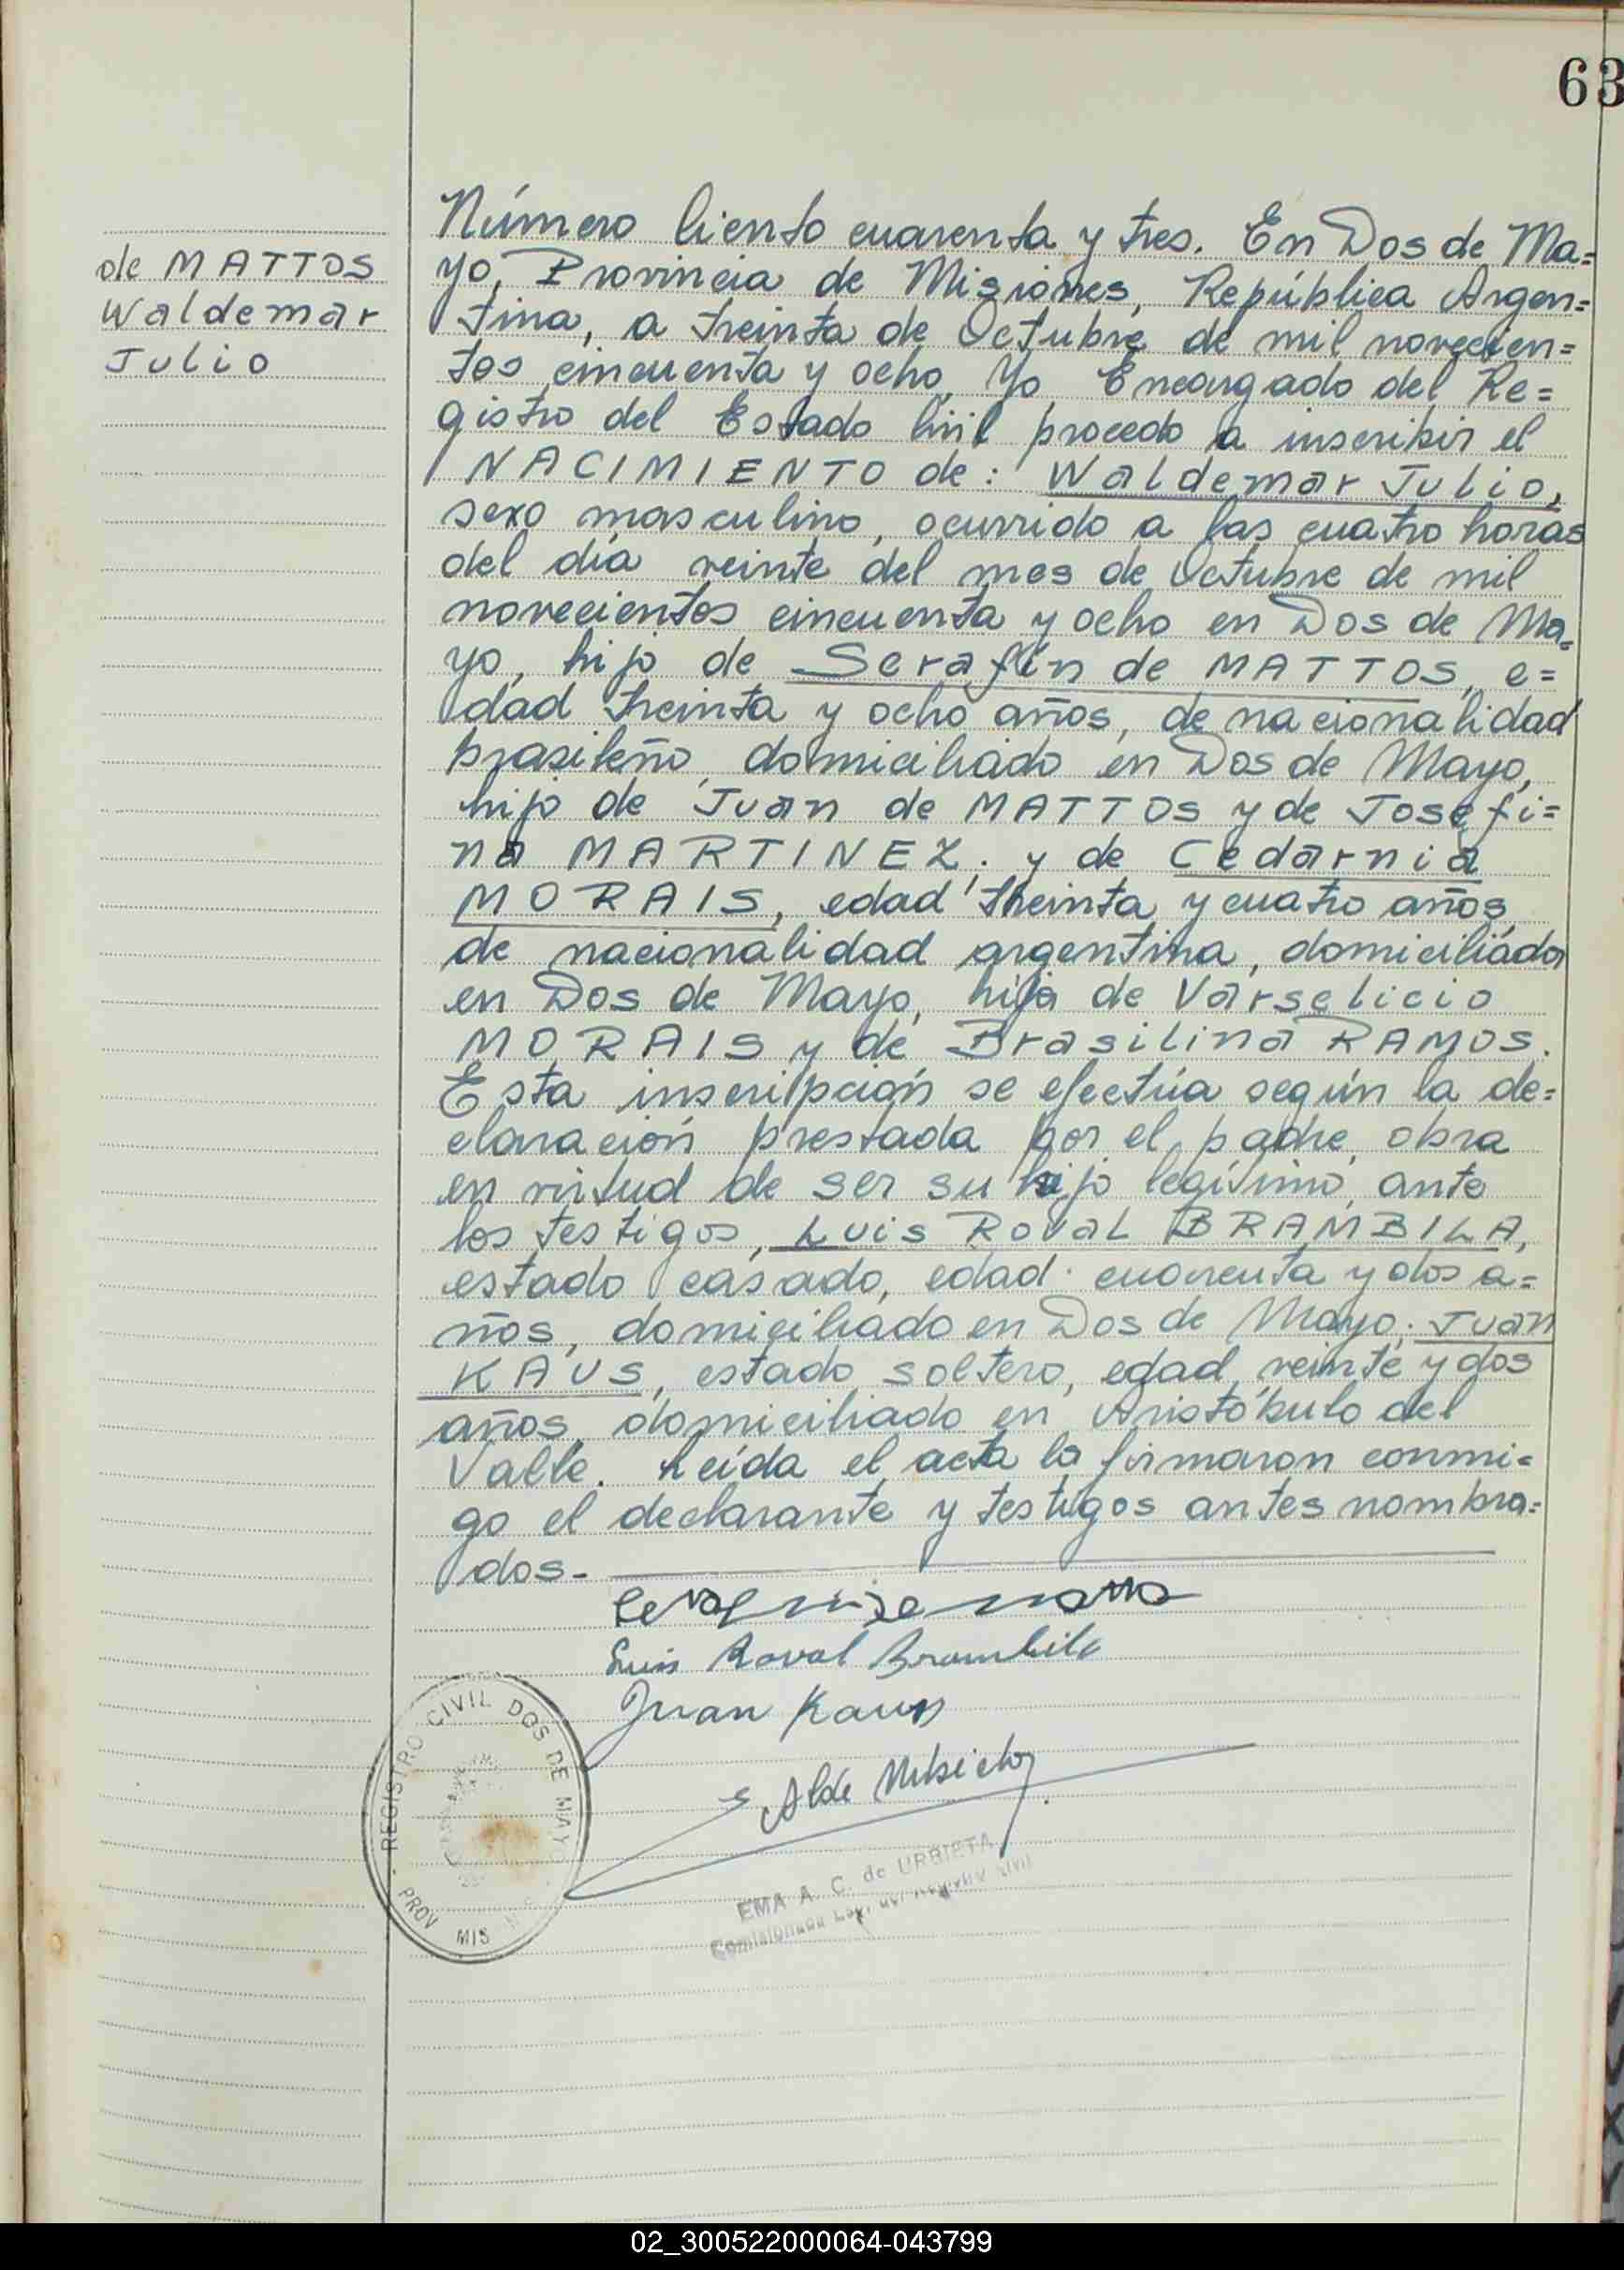 63
de MATTOS
Waldemar
Julio
Número Ciento cuarenta y tres. En Dos de Ma=
yo, Provincia de Misiones, República Argen=
tina, a treinta de Octubre de mil novecien=
tos cincuenta y ocho, Yo Encargado del Re=
gistro del Estado Civil procedo a inscribir el
NACIMIENTO de: Waldemar Julio,
sexo masculino, ocurrido a las cuatro horas
del día veinte del mes de Octubre de mil
novecientos cincuenta y ocho en Dos de Ma=
yo, hijo de Serafín de MATTOS, e=
dad treinta y ocho años, de nacionalidad
brasileño, domiciliado en Dos de Mayo,
hijo de Juan de MATTOS y de Josefi=
na MARTINEZ; y de Cedarnia
MORAIS, edad treinta y cuatro años,
de nacionalidad argentina, domiciliada
en Dos de Mayo, hija de Varselicio
MORAIS y de Brasilina RAMOS.
Esta inscripción se efectúa según la de=
claración prestada por el padre, obra
en virtud de ser su hijo legítimo, ante
los testigos, Luis Roval BRAMBILA,
estado casado, edad cuarenta y dos a=
ños, domiciliado en Dos de Mayo; Juan
KAUS, estado soltero, edad veinte y dos
años, domiciliado en Aristóbulo del
Valle. Leída el acta la firmaron conmi=
go el declarante y testigos antes nombra=
dos.-
Luis Roval Brambila
Juan Kaus
REGISTRO CIVIL DOS DE MAYO
PROV MIS
EMA A. C. de URBIETA
02_300522000064-043799